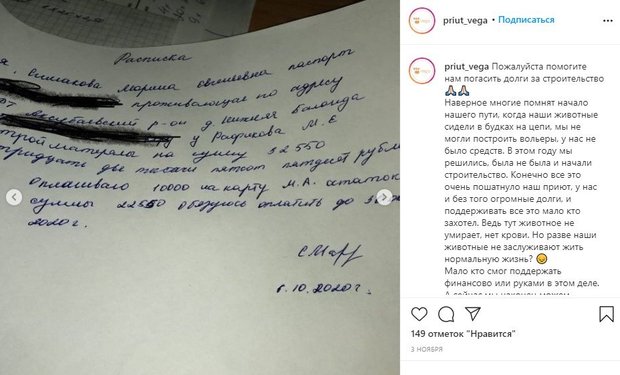 Расписка
Симакова Марина Овсеевна паспорт
проживающая по адресу
р-он д. Нижняя
у Радикова М. Е
на сумму 32550
тридцать две тысячи пятсот пятдесят рубл
Оплашиваю 10000 на карту М.А. остаток
суммы 22550 обязуюсь оплатить до
2020 г.
6.10.2020 г.
priut_vega • Подписаться
priut_vega Пожалуйста помогите
нам погасить долги за строительство
🙏🏻🙏🏻
Наверное многие помнят начало
нашего пути, когда наши животные
сидели в будках на цепи, мы не
могли построить вольеры, у нас не
было средств. В этом году мы
решились, была не была и начали
строительство. Конечно все это
очень пошатнуло наш приют, у нас
и без того огромные долги, и
поддерживать все это мало кто
захотел. Ведь тут животное не
умирает, нет крови. Но разве наши
животные не заслуживают жить
нормальную жизнь? 😞
Мало кто смог поддержать
финансово или руками в этом деле.
А сейчас мы
149 отметок "Нравится"
3 НОЯБРЯ